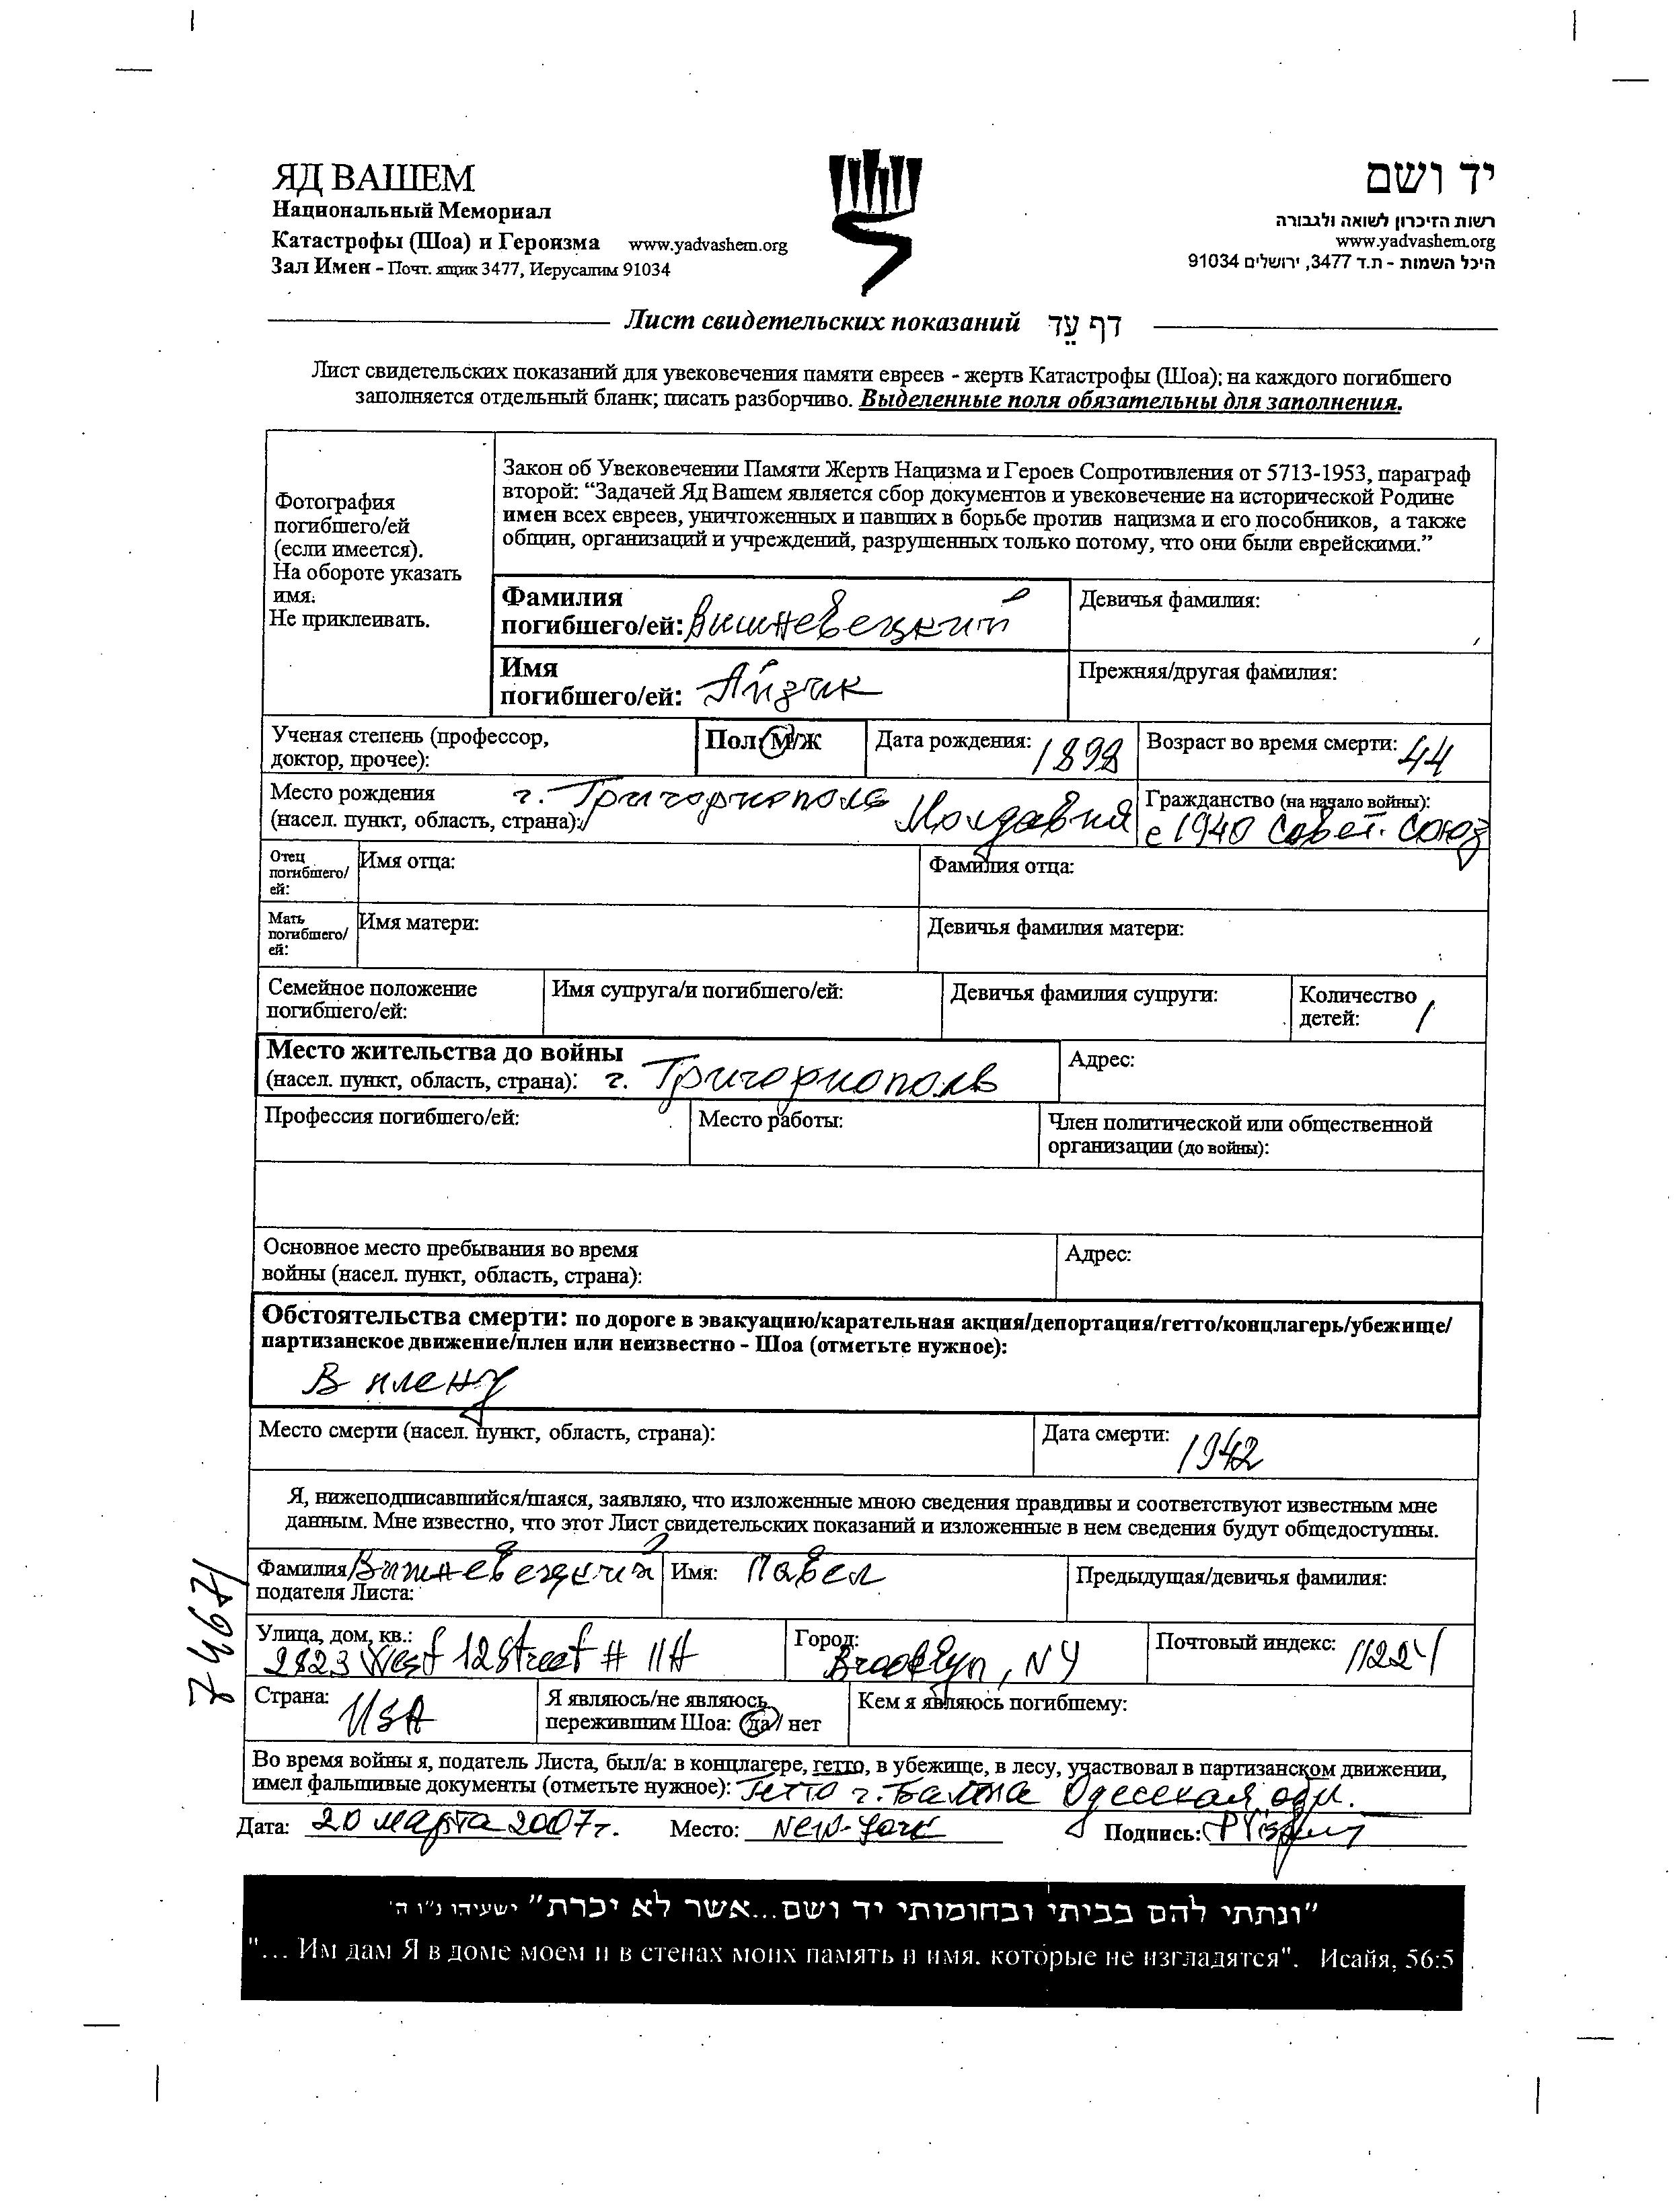 ЯД ВАШЕМ
Национальный Мемориал
Катастрофы (Шоа) и Героизма www.yadvashem.org
Зал Имен - Почт. ящик 3477, Иерусалим 91034
יד ושם
רשות הזיכרון לשואה ולגבורה
www.yadvashem.org
היכל השמות - ת.ד 3477, ירושלים 91034
Лист свидетельских показаний דף עֵד
Лист свидетельских показаний для увековечения памяти евреев - жертв Катастрофы (Шоа); на каждого погибшего
заполняется отдельный бланк; писать разборчиво. Выделенные поля обязательны для заполнения.
Фотография
погибшего/ей
(если имеется).
На обороте указать
имя.
Не приклеивать.
Закон об Увековечении Памяти Жертв Нацизма и Героев Сопротивления от 5713-1953, параграф
второй: “Задачей Яд Вашем является сбор документов и увековечение на исторической Родине
имен всех евреев, уничтоженных и павших в борьбе против нацизма и его пособников, а также
общин, организаций и учреждений, разрушенных только потому, что они были еврейскими.”
Фамилия
погибшего/ей: Вишневецкий
Девичья фамилия:
Имя
погибшего/ей: Айзик
Прежняя/другая фамилия:
Ученая степень (профессор,
доктор, прочее):
Пол: М/Ж
Дата рождения: 1898
Возраст во время смерти: 44
Место рождения
(насел. пункт, область, страна): г. Григориополь Молдавия
Гражданство (на начало войны):
с 1940 Совет. Союз
Отец
погибшего/
ей:
Имя отца:
Фамилия отца:
Мать
погибшего/
ей:
Имя матери:
Девичья фамилия матери:
Семейное положение
погибшего/ей:
Имя супруга/и погибшего/ей:
Девичья фамилия супруги:
Количество
детей: 1
Место жительства до войны
(насел. пункт, область, страна): г. Григориополь
Адрес:
Профессия погибшего/ей:
Место работы:
Член политической или общественной
организации (до войны):
Основное место пребывания во время
войны (насел. пункт, область, страна):
Адрес:
Обстоятельства смерти: по дороге в эвакуацию/карательная акция/депортация/гетто/концлагерь/убежище/
партизанское движение/плен или неизвестно - Шоа (отметьте нужное):
В плену
Место смерти (насел. пункт, область, страна):
Дата смерти: 1942
Я, нижеподписавшийся/шаяся, заявляю, что изложенные мною сведения правдивы и соответствуют известным мне
данным. Мне известно, что этот Лист свидетельских показаний и изложенные в нем сведения будут общедоступны.
Фамилия Вишневецкий
подателя Листа:
Имя: Павел
Предыдущая/девичья фамилия:
Улица, дом, кв.:
2823 West 12 Street # 11A
Город:
Brooklyn, NY
Почтовый индекс: 11224
Страна: USA
Я являюсь/не являюсь
пережившим Шоа: да / нет
Кем я являюсь погибшему:
Во время войны я, податель Листа, был/а: в концлагере, гетто, в убежище, в лесу, участвовал в партизанском движении,
имел фальшивые документы (отметьте нужное): Гетто г. Балта Одесская обл.
Дата: 20 марта 2007г. Место: New-York Подпись:
74671
"ונתתי להם בביתי ובחומותי יד ושם...אשר לא יכרת" ישעיהו נ"ו ה'
"... Им дам Я в доме моем и в стенах моих память и имя, которые не изгладятся". Исайя, 56:5